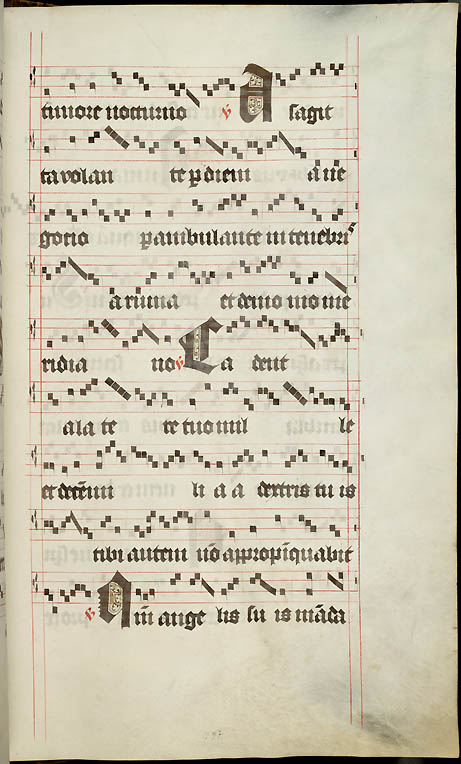 timore nocturno ℣ A sagit
ta volan te ꝑ diem A ne
gocio ꝑambulante in tenebris
a ruina et demo nio me
ridia no ℣ Ca dent
a la te re tuo mil le
et decēm mi li a a dextris tu is
tibi autem nō appropīquabit
℣ Qm̄ ange lis su is māda